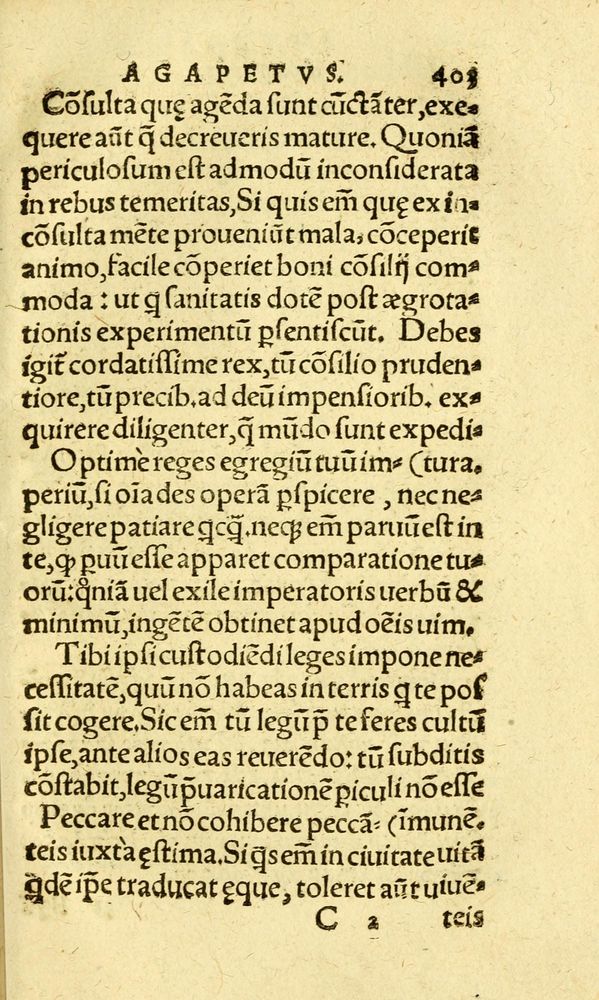 AGAPETVS. 403
Cõsulta quę agẽda sunt cũctãter, exe-
quere aũt q̃ decreueris mature. Quoniã
periculosum est admodũ inconsiderata
in rebus temeritas, Si quis em̃ quę ex in-
cõsulta mẽte proueniũt mala, cõceperit
animo, facile cõperiet boni cõsilij com-
moda: ut q̃ sanitatis dotẽ post ægrota-
tionis experimentũ p̃sentiscũt. Debes
igit̃ cordatissime rex, tũ cõsilio pruden-
tiore, tũ precib. ad deũ impensiorib. ex-
quirere diligenter, q̃ mũdo sunt expedi-
Optime reges egregiũ tuũ im- (tura.
periũ, si oĩa des operã p̱spicere, nec ne-
gligere patiare q̇cq̃. neq; em̃ paruũ est in
te, qꝫ puũ esse apparet comparatione tu-
orũ: qñiã uel exile imperatoris uerbũ &
minimũ, ingẽtẽ obtinet apud oẽis uim.
Tibi ipsi custodiẽdi leges impone ne-
cessitatẽ, quũ nõ habeas in terris q̇ te pos
sit cogere. Sic em̃ tũ legũ p̃ te feres cultũ
ipse, ante alios eas reuerẽdo: tũ subditis
cõstabit, legũ p̃uaricationẽ piculi nõ esse
Peccare et nõ cohibere peccã- (ĩmunẽ.
teis iuxtà ęstima. Si q̇s em̃ in ciuitate uitã
q̇dẽ ip̃e traducat ęque, toleret aũt uiuẽ-
C 2 teis